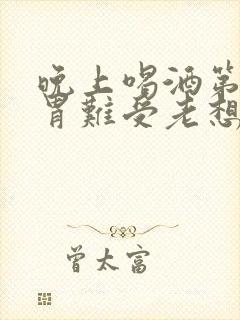 晚上喝酒第
胃難受老想
曾太富